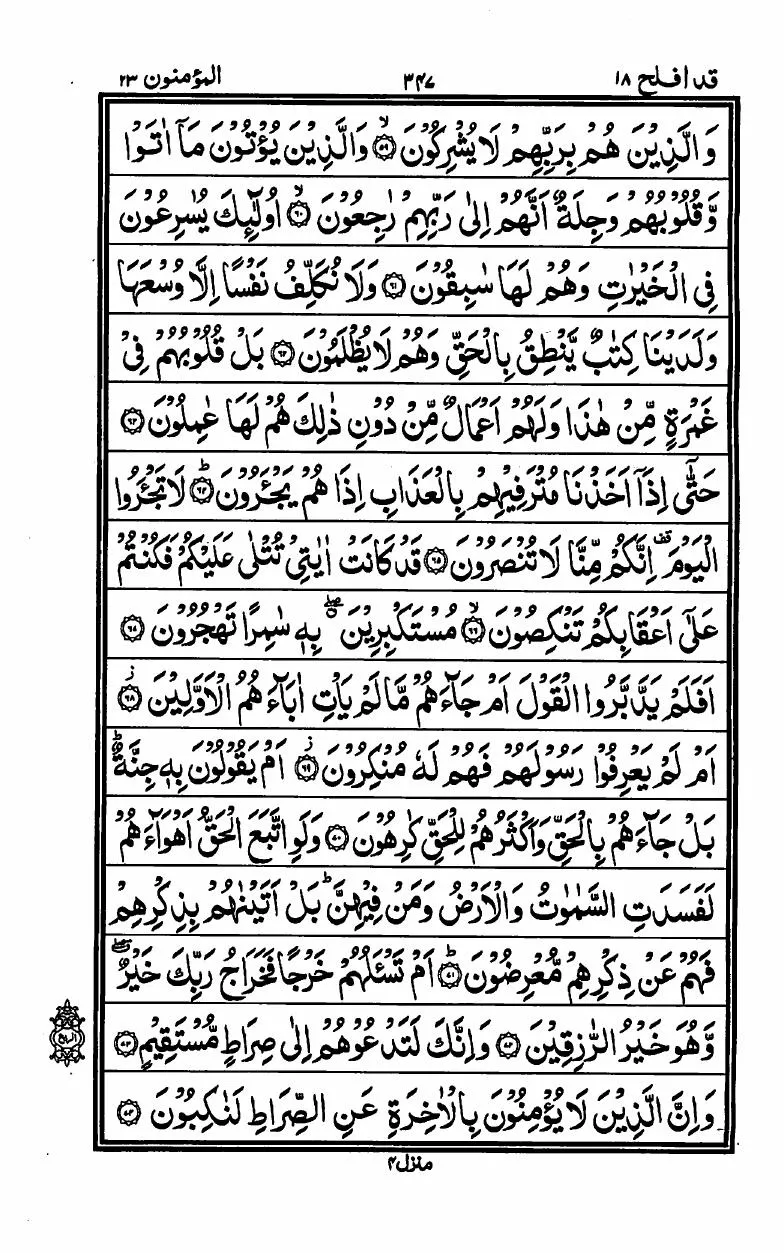 قد افلح ١٨ ٣٤٧ المؤمنون ٢٣
وَالَّذِيْنَ هُمْ بِرَبِّهِمْ لَا يُشْرِكُوْنَ ۙ﴿۵۹﴾ وَالَّذِيْنَ يُؤْتُوْنَ مَاۤ اٰتَوْا
وَّقُلُوْبُهُمْ وَجِلَةٌ اَنَّهُمْ اِلٰى رَبِّهِمْ رٰجِعُوْنَ ۙ﴿۶۰﴾ اُولٰٓئِكَ يُسٰرِعُوْنَ
فِى الْخَيْرٰتِ وَهُمْ لَهَا سٰبِقُوْنَ ﴿۶۱﴾ وَلَا نُكَلِّفُ نَفْسًا اِلَّا وُسْعَهَا
وَلَدَيْنَا كِتٰبٌ يَّنْطِقُ بِالْحَقِّ وَهُمْ لَا يُظْلَمُوْنَ ﴿۶۲﴾ بَلْ قُلُوْبُهُمْ فِىْ
غَمْرَةٍ مِّنْ هٰذَا وَلَهُمْ اَعْمَالٌ مِّنْ دُوْنِ ذٰلِكَ هُمْ لَهَا عٰمِلُوْنَ ﴿۶۳﴾
حَتّٰۤى اِذَاۤ اَخَذْنَا مُتْرَفِيْهِمْ بِالْعَذَابِ اِذَا هُمْ يَجْـَٔرُوْنَ ؕ﴿۶۴﴾ لَا تَجْـَٔرُوا
الْيَوْمَ ۟ اِنَّكُمْ مِّنَّا لَا تُنْصَرُوْنَ ﴿۶۵﴾ قَدْ كَانَتْ اٰيٰتِىْ تُتْلٰى عَلَيْكُمْ فَكُنْتُمْ
عَلٰۤى اَعْقَابِكُمْ تَنْكِصُوْنَ ۙ﴿۶۶﴾ مُسْتَكْبِرِيْنَ ۖۗ بِهٖ سٰمِرًا تَهْجُرُوْنَ ﴿۶۷﴾
اَفَلَمْ يَدَّبَّرُوا الْقَوْلَ اَمْ جَآءَهُمْ مَّا لَمْ يَاْتِ اٰبَآءَهُمُ الْاَوَّلِيْنَ ؗ﴿۶۸﴾
اَمْ لَمْ يَعْرِفُوْا رَسُوْلَهُمْ فَهُمْ لَهٗ مُنْكِرُوْنَ ؗ﴿۶۹﴾ اَمْ يَقُوْلُوْنَ بِهٖ جِنَّةٌ ؕ
بَلْ جَآءَهُمْ بِالْحَقِّ وَاَكْثَرُهُمْ لِلْحَقِّ كٰرِهُوْنَ ﴿۷۰﴾ وَلَوِ اتَّبَعَ الْحَقُّ اَهْوَآءَهُمْ
لَفَسَدَتِ السَّمٰوٰتُ وَالْاَرْضُ وَمَنْ فِيْهِنَّ ؕ بَلْ اَتَيْنٰهُمْ بِذِكْرِهِمْ
فَهُمْ عَنْ ذِكْرِهِمْ مُّعْرِضُوْنَ ؕ﴿۷۱﴾ اَمْ تَسْـَٔلُهُمْ خَرْجًا فَخَرَاجُ رَبِّكَ خَيْرٌ ۖۗ
وَّهُوَ خَيْرُ الرّٰزِقِيْنَ ﴿۷۲﴾ وَاِنَّكَ لَتَدْعُوْهُمْ اِلٰى صِرَاطٍ مُّسْتَقِيْمٍ ﴿۷۳﴾
الربع
وَاِنَّ الَّذِيْنَ لَا يُؤْمِنُوْنَ بِالْاٰخِرَةِ عَنِ الصِّرَاطِ لَنٰكِبُوْنَ ﴿۷۴﴾
منزل ۴